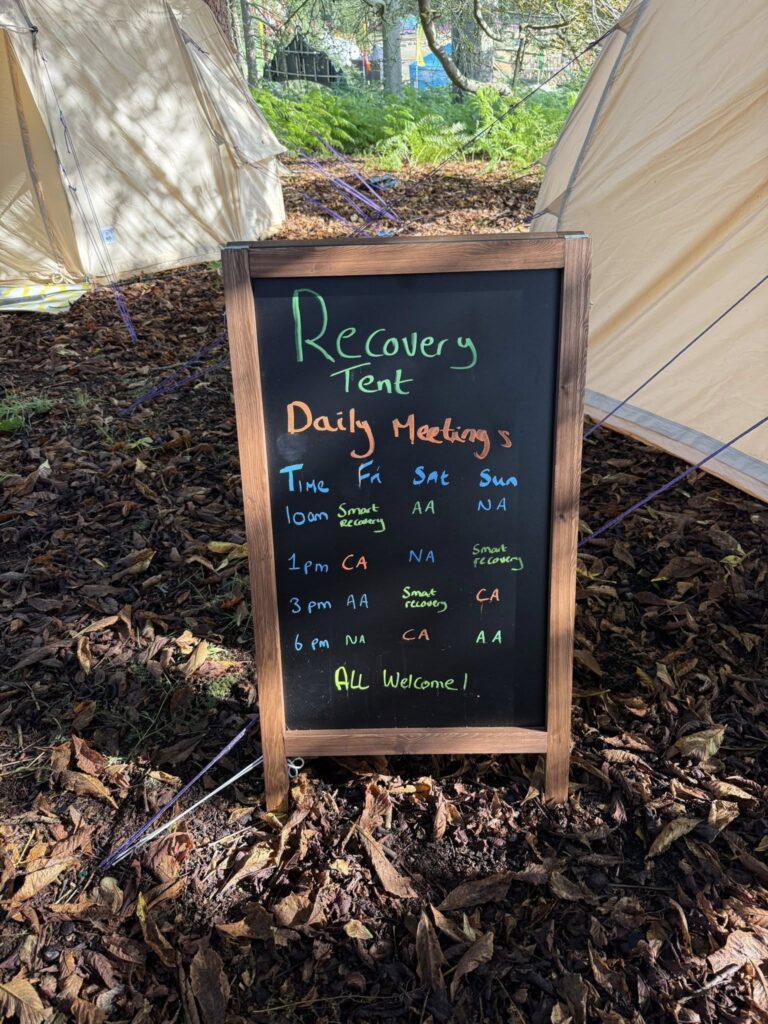 Recovery
Tent
Daily Meetings
Time Fri Sat Sun
10am Smart recovery AA NA
1pm CA NA Smart recovery
3pm AA Smart recovery CA
6pm NA CA AA
ALL Welcome!